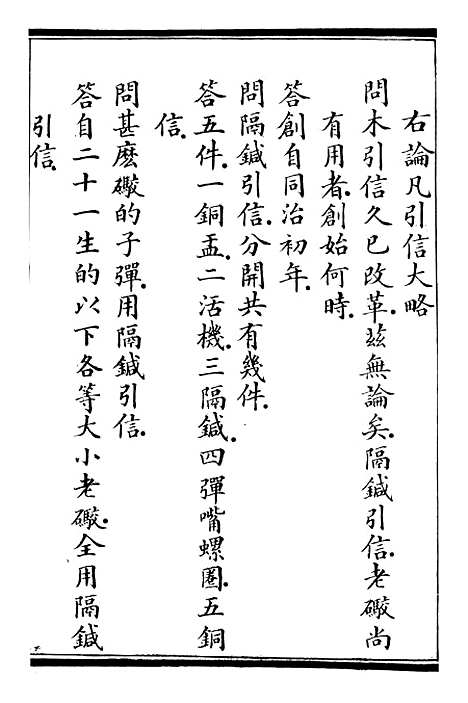 右論凡引信大略
問木引信久已改革.茲無論矣.隔鍼引信.老礮尚
有用者.創始何時.
答創自同治初年.
問隔鍼引信.分開共有幾件.
答五件.一銅盂.二活機.三隔鍼.四彈嘴螺圈.五銅
信.
問甚麽礮的子彈.用隔鍼引信.
答自二十一生的以下各等大小老礮.全用隔鍼
引信.